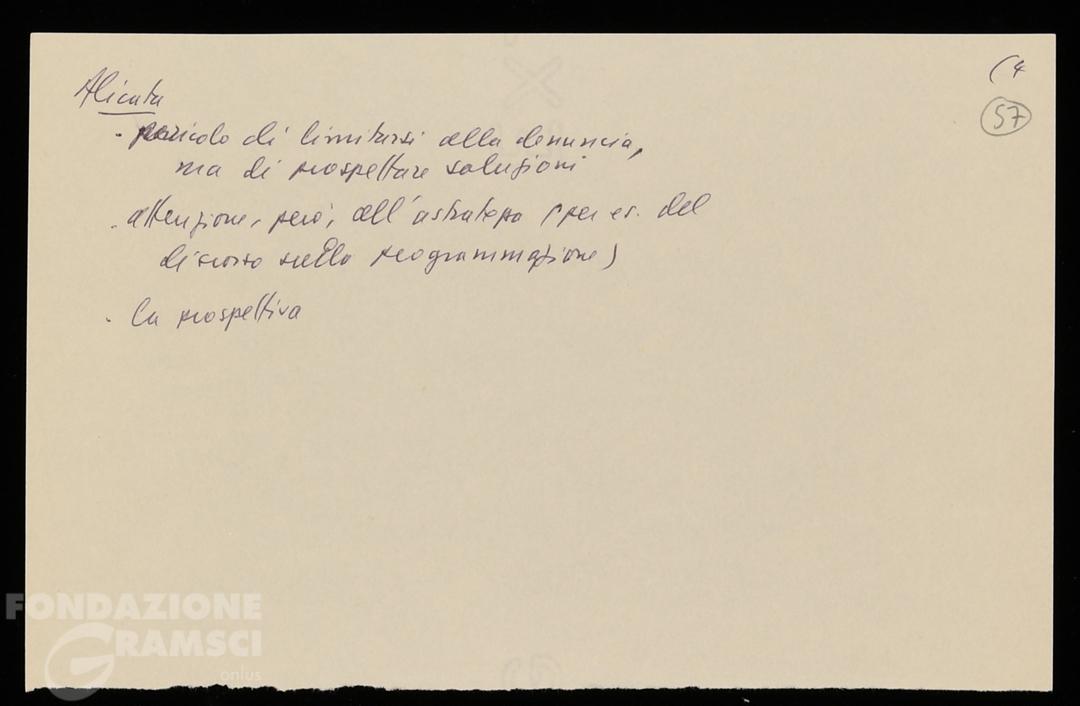 (4
57
Alicata
- pericolo di limitarsi alla denuncia,
ma di prospettare soluzioni
- attenzione, però, all'astrattezza (per es. del
discorso sulla programmazione)
- la prospettiva
FONDAZIONE
GRAMSCI
onlus